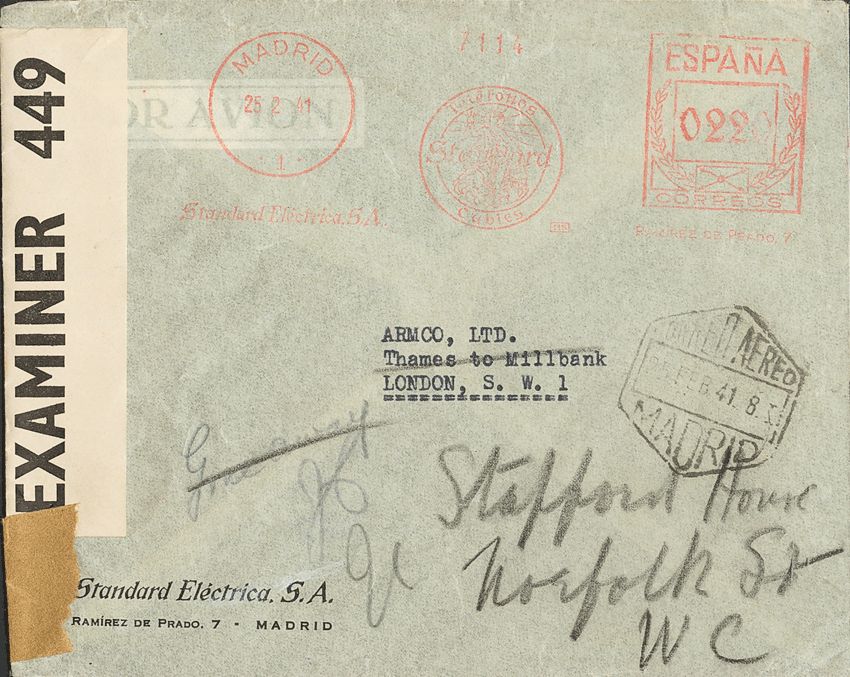 EXAMINER 449
OR AVION
MADRID
25 2 41
· 1 ·
Standard Eléctrica, S.A.
7114
Teléfonos
Standard
Cables
ESPAÑA
0220
CORREOS
RAMÍREZ DE PRADO, 7
ARMCO, LTD.
Thames to Millbank
LONDON, S. W. 1
CORREO AEREO
FEB 41. 8.
MADRID
Gone away
Stafford House
Norfolk St
W C
Standard Eléctrica, S.A.
RAMÍREZ DE PRADO, 7 - MADRID